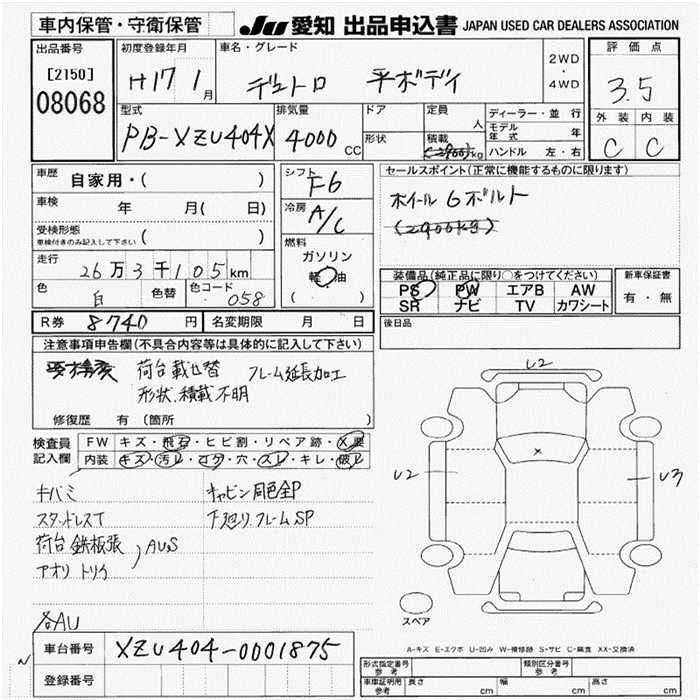 車内保管・守衛保管
JU 愛知 出品申込書 JAPAN USED CAR DEALERS ASSOCIATION
出品番号
[2150]
08068
初度登録年月
H17 1月
車名・グレード
デュトロ 平ボディ
2WD
・
4WD
評価点
3.5
外装 内装
C C
型式
PB-XZU404X
排気量
4000 CC
ドア
形状
定員
人
積載
(2900)kg
ディーラー・並行
モデル年式 年
ハンドル 左・右
車歴
自家用・( )
車検
年 月( 日)
受検形態
車検付きのみ記入して下さい ( )
走行
26万3千105km
色
白
色替
色コード
058
シフト
F6
冷房
A/C
燃料
ガソリン
軽油
( )
セールスポイント(正常に機能するものに限ります)
ホイール6ボルト
(2900kg)
装備品(純正品に限り○をつけてください)
PS PW エアB AW
SR ナビ TV カワシート
新車保証書
有・無
R券 8740円
名変期限 月 日
後日品
注意事項申告欄(不具合内容等は具体的に記入して下さい)
荷台載せ替 フレーム延長加工
形状、積載不明
修復歴 有(箇所 )
検査員記入欄
FW キズ・飛石・ヒビ割・リペア跡・X要
内装 キズ・汚レ・コゲ・穴・スレ・キレ・破レ
キバミ
キャビン同色全P
スタッドレスT
下廻り、フレームSP
荷台鉄板張
アオリトリケ
AUS
各AU
U2
U2
U3
×
スペア
A-キズ E-エクボ U-凹み W-補修跡 S-サビ C-腐食 XX-交換済
車台番号
XZU404-0001875
登録番号
型式指定番号
参考
類別区分番号
参考
車庫証明用
参考
長さ cm
幅 cm
高さ cm